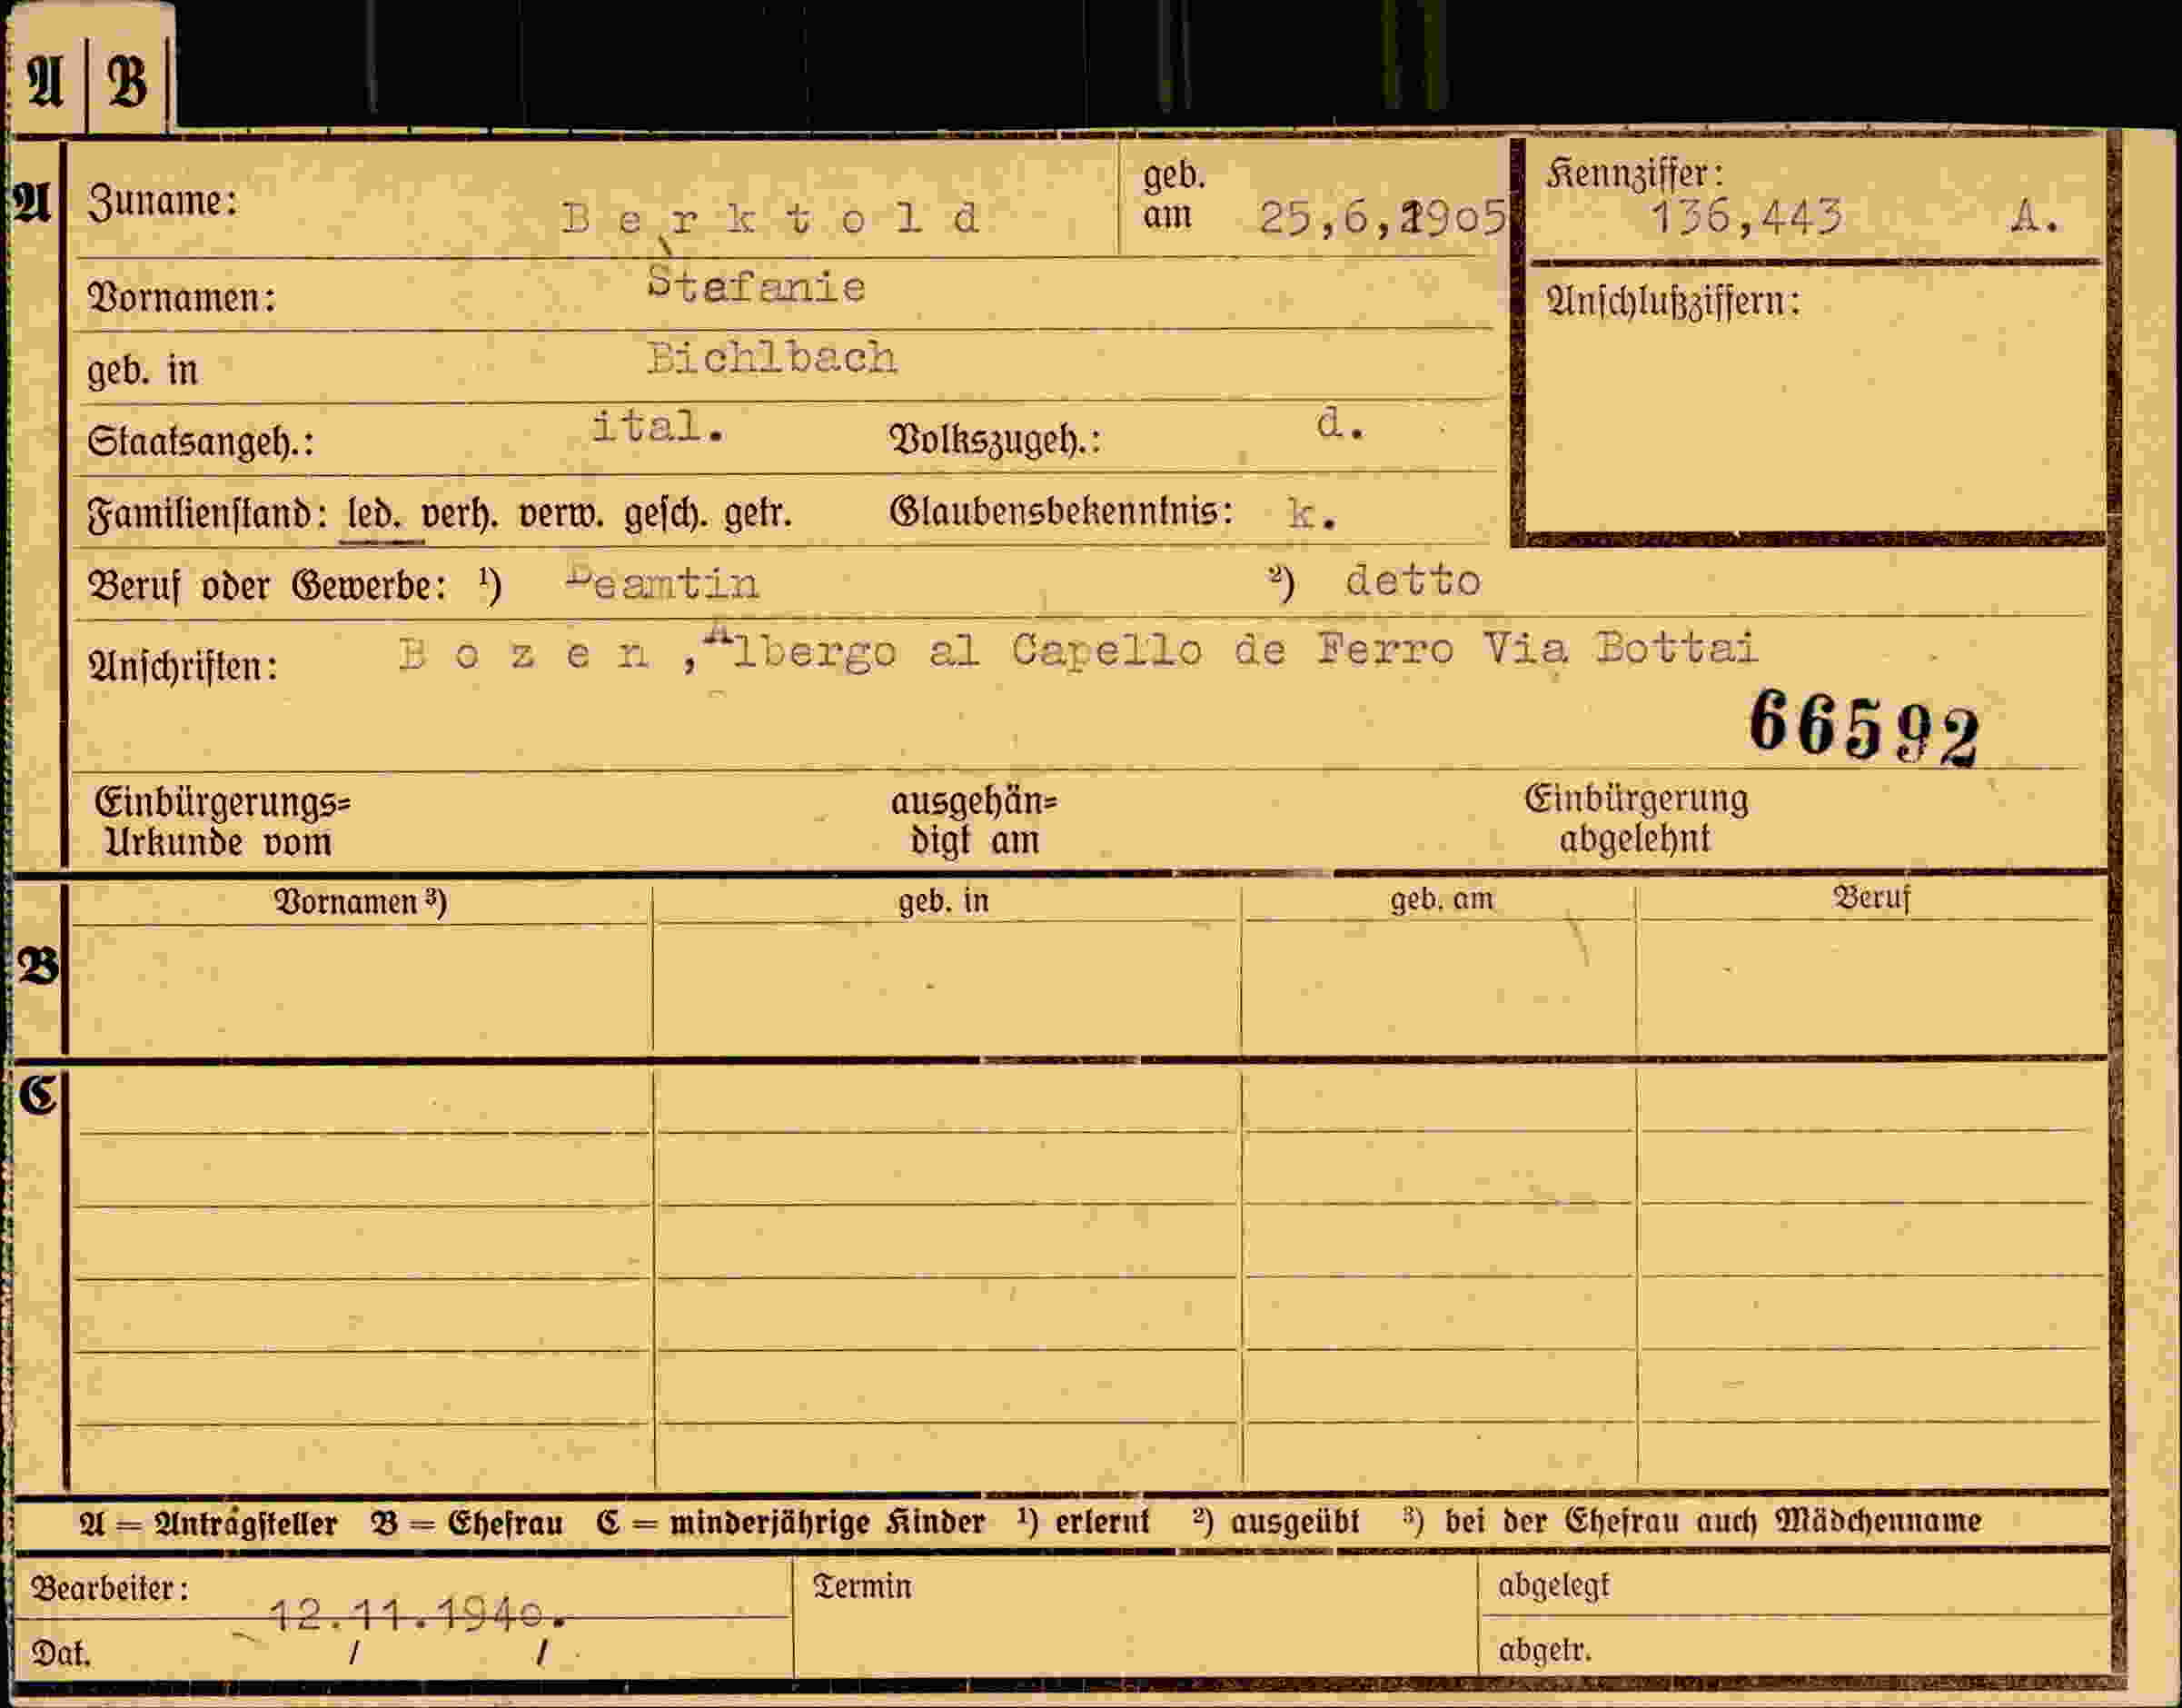 A B
A Zuname: Berktold geb. am 25,6,1905 Kennziffer: 136,443 A.
Vornamen: Stefanie Anschlußziffern:
geb. in Bichlbach
Staatsangeh.: ital. Volkszugeh.: d.
Familienstand: led. verh. verw. gesch. getr. Glaubensbekenntnis: k.
Beruf oder Gewerbe: ¹) Beamtin ²) detto
Anschriften: Bozen, Albergo al Capello de Ferro Via Bottai
66592
Einbürgerungs= ausgehän= Einbürgerung
Urkunde vom digt am abgelehnt
Vornamen ³) geb. in geb. am Beruf
B
C
A = Antragsteller B = Ehefrau C = minderjährige Kinder ¹) erlernt ²) ausgeübt ³) bei der Ehefrau auch Mädchenname
Bearbeiter: Termin abgelegt
12.11.1940.
Dat. / / abgetr.